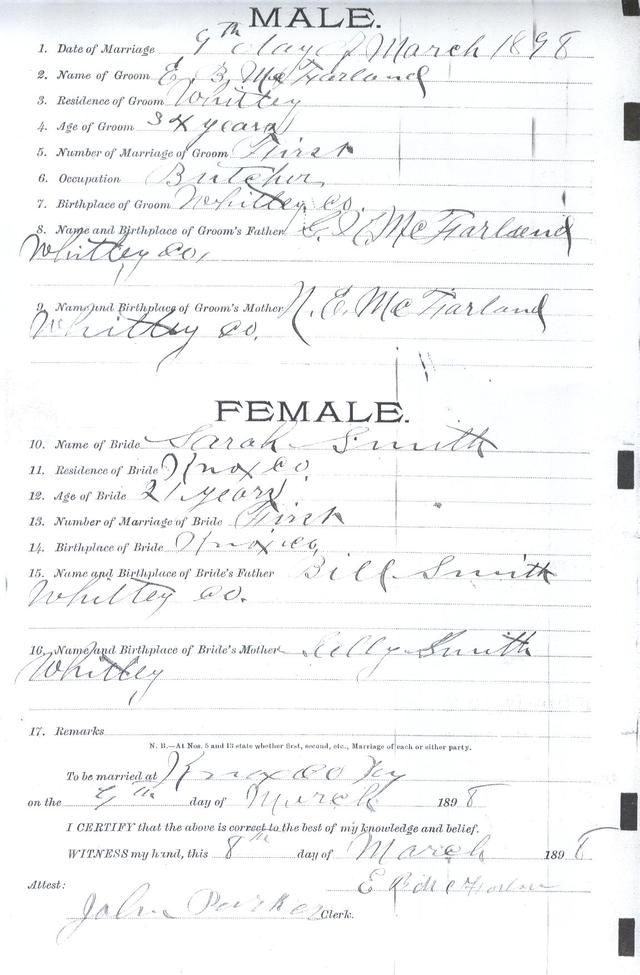 MALE.
1. Date of Marriage 9th day of March 1898
2. Name of Groom E. B. McFarland
3. Residence of Groom Whitley
4. Age of Groom years
5. Number of Marriage of Groom First
6. Occupation Butcher
7. Birthplace of Groom Whitley Co.
8. Name and Birthplace of Groom's Father McFarland
Whitley Co.
9. Name and Birthplace of Groom's Mother N. E. McFarland
Whitley Co.
FEMALE.
10. Name of Bride Sarah Smith
11. Residence of Bride Knox Co
12. Age of Bride 21 years
13. Number of Marriage of Bride First
14. Birthplace of Bride Knox Co,
15. Name and Birthplace of Bride's Father Bill Smith
Whitley Co.
16. Name and Birthplace of Bride's Mother Smith
Whitley
17. Remarks
N. B.—At Nos. 5 and 13 state whether first, second, etc., Marriage of each or either party.
To be married at Knox Co Ky
on the 9th day of March 1898
I CERTIFY that the above is correct to the best of my knowledge and belief.
WITNESS my hand, this 8th day of March 1898
E B McFarlan
Attest:
John Parker Clerk.